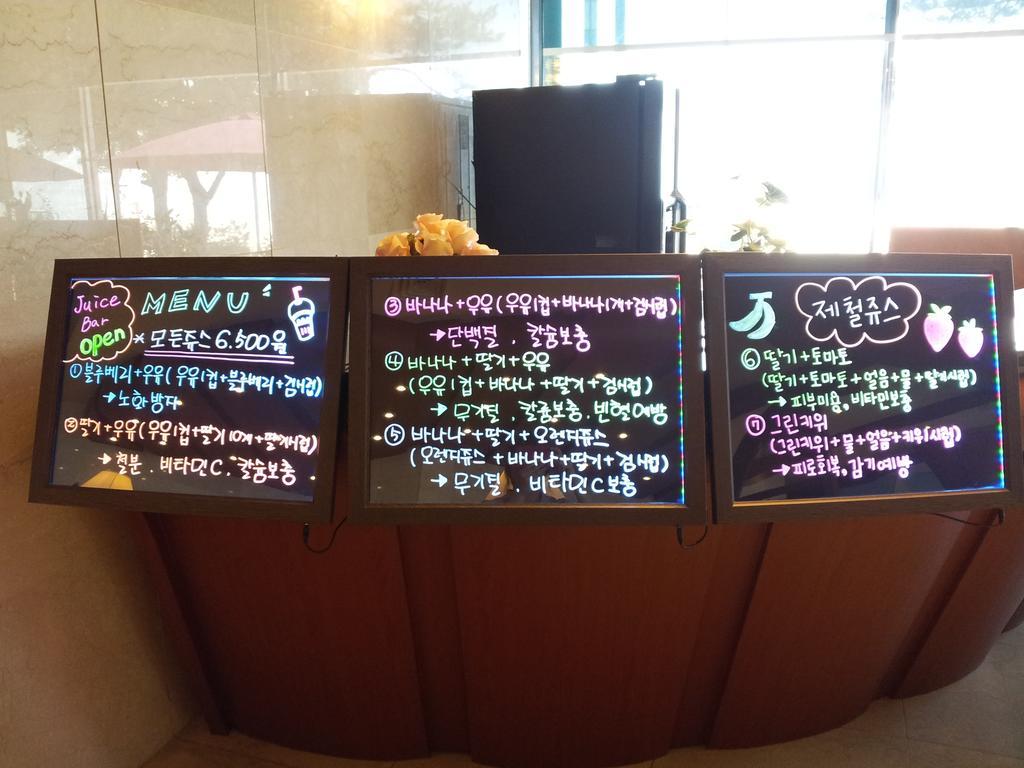 Juice
Bar
open
MENU
* 모든쥬스 6.500원
① 블루베리+우유(우유1컵+블루베리+검시럽)
→ 노화방지
② 딸기+우유(우유1컵+딸기10개+딸기시럽)
→ 철분. 비타민C. 칼슘보충
③ 바나나+우유(우유1컵+바나나1개+검시럽)
→ 단백질, 칼슘보충
④ 바나나+딸기+우유
(우유1컵+바나나+딸기+검시럽)
→ 무기질, 칼슘보충, 빈혈예방
⑤ 바나나+딸기+오렌지쥬스
(오렌지쥬스+바나나+딸기+검시럽)
→ 무기질, 비타민C보충
제철쥬스
⑥ 딸기+토마토
(딸기+토마토+얼음+물+딸기시럽)
→ 피부미용, 비타민보충
⑦ 그린키위
(그린키위+물+얼음+키위시럽)
→ 피로회복, 감기예방